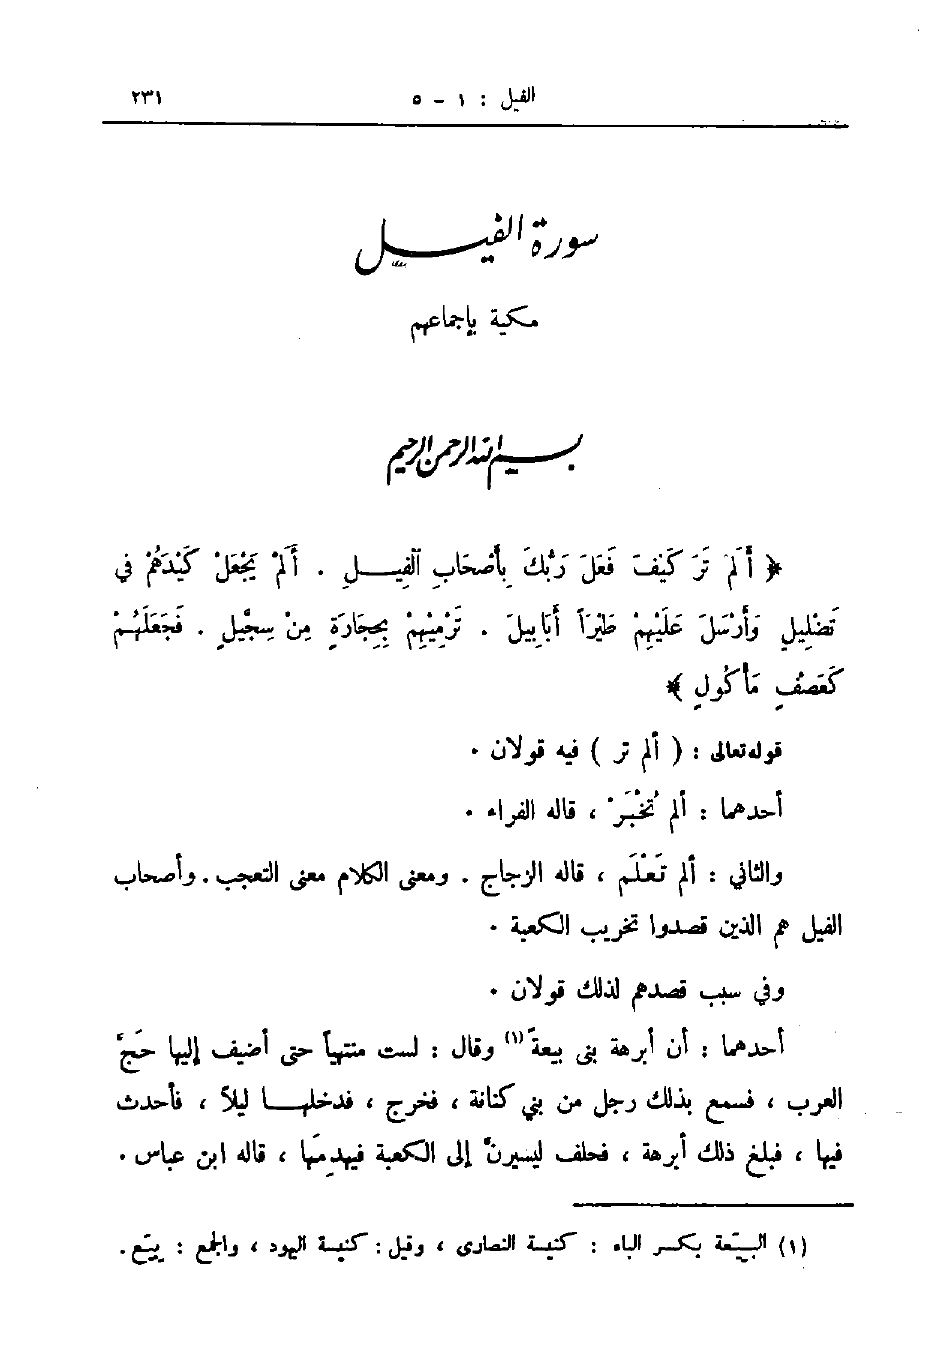 الفيل : ١ - ٥ ٢٣١
سورة الفيل
مكية بإجماعهم
بسم الله الرحمن الرحيم
﴿ أَلَمْ تَرَ كَيْفَ فَعَلَ رَبُّكَ بِأَصْحَابِ الْفِيلِ . أَلَمْ يَجْعَلْ كَيْدَهُمْ فِي
تَضْلِيلٍ وَأَرْسَلَ عَلَيْهِمْ طَيْرَاً أَبَابِيلَ . تَرْمِيْهِمْ بِحِجَارَةٍ مِنْ سِجِّيلٍ . فَجَعَلَهُمْ
كَعَصْفٍ مَأْكُولٍ ﴾
قوله تعالى : ( ألم تر ) فيه قولان .
أحدهما : ألم تُخْبَرْ ، قاله الفراء .
والثاني : ألم تَعْلَم ، قاله الزجاج . ومعنى الكلام معنى التعجب . وأصحاب
الفيل هم الذين قصدوا تخريب الكعبة .
وفي سبب قصدهم لذلك قولان .
أحدهما : أن أبرهة بنى بيعةً (١) وقال : لست منتهياً حتى أضيف إليها حَجَّ
العرب ، فسمع بذلك رجل من بني كنانة ، فخرج ، فدخلها ليلاً ، فأحدث
فيها ، فبلغ ذلك أبرهة ، فحلف ليسيرنَّ إلى الكعبة فيهدِمَها ، قاله ابن عباس .
(١) البِيْعة بكسر الباء : كنيسة النصارى ، وقيل : كنيسة اليهود ، والجمع : بِيَع .